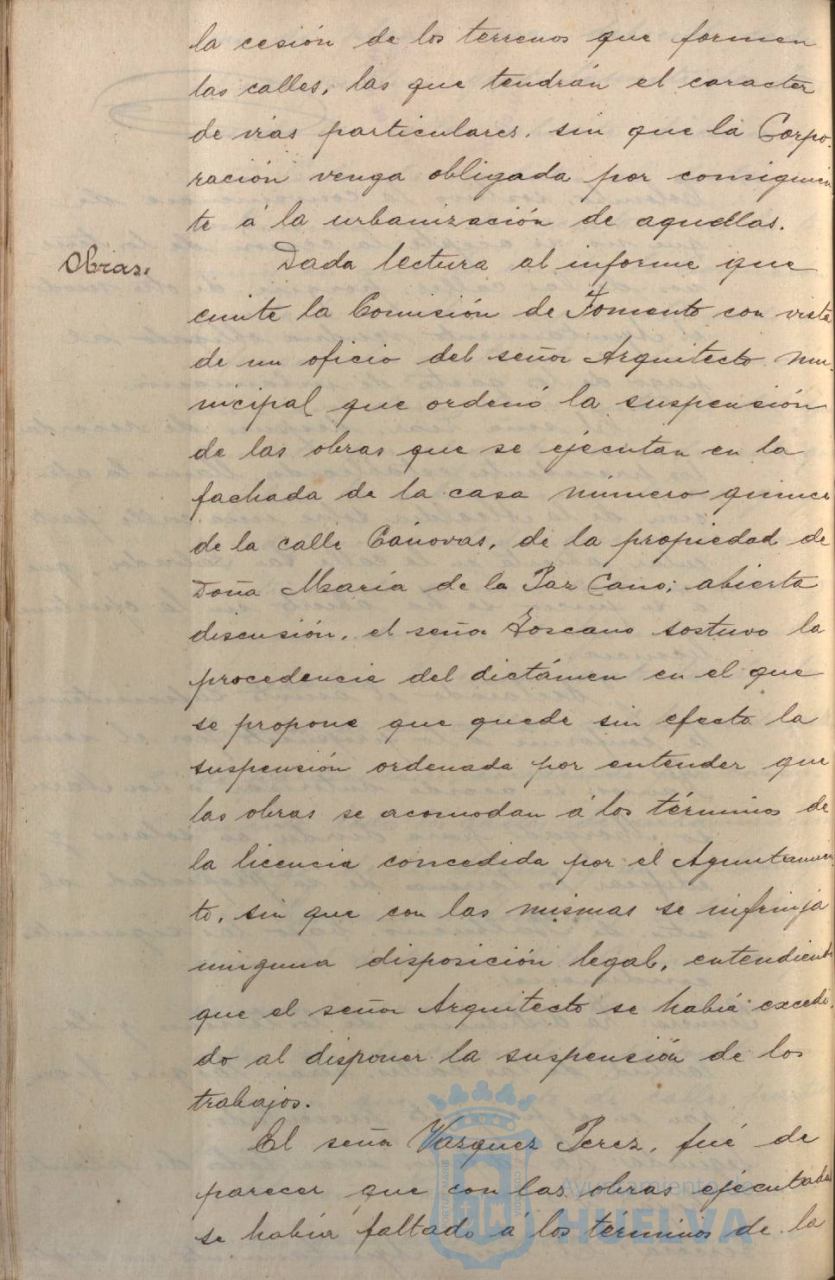 la cesión de los terrenos que formen
las calles, las que tendrán el caracter
de vias particulares, sin que la Corpo-
ración venga obligada por consiguien
te á la urbanización de aquellas.
Obras.
Dada lectura al informe que
emite la Comisión de Fomento con vista
de un oficio del señor Arquitecto mu-
nicipal que ordenó la suspensión
de las obras que se ejecutan en la
fachada de la casa número quince
de la calle Cánovas, de la propiedad de
Doña María de la Paz Cano; abierta
discusión, el señor Toscano sostuvo la
procedencia del dictámen en el que
se propone que quede sin efecto la
suspensión ordenada por entender que
las obras se acomodan á los términos de
la licencia concedida por el Ayuntamien
to, sin que con las mismas se infrinja
ninguna disposición legal, entendiendo
que el señor Arquitecto se había excedi-
do al disponer la suspensión de los
trabajos.
El señor Vazquez Perez, fué de
parecer que con las obras ejecutadas
se había faltado á los términos de la
Ayuntamiento de
HUELVA